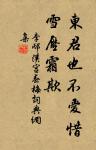 東君也不愛惜
雪壓霜欺
李邴漢宮春梅詞典網
集